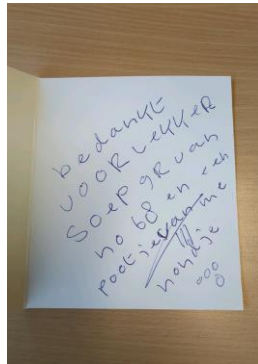 bedankt
VOOR LEKKER
SOEP gR van
no 68 en een
pootje van me
hondje